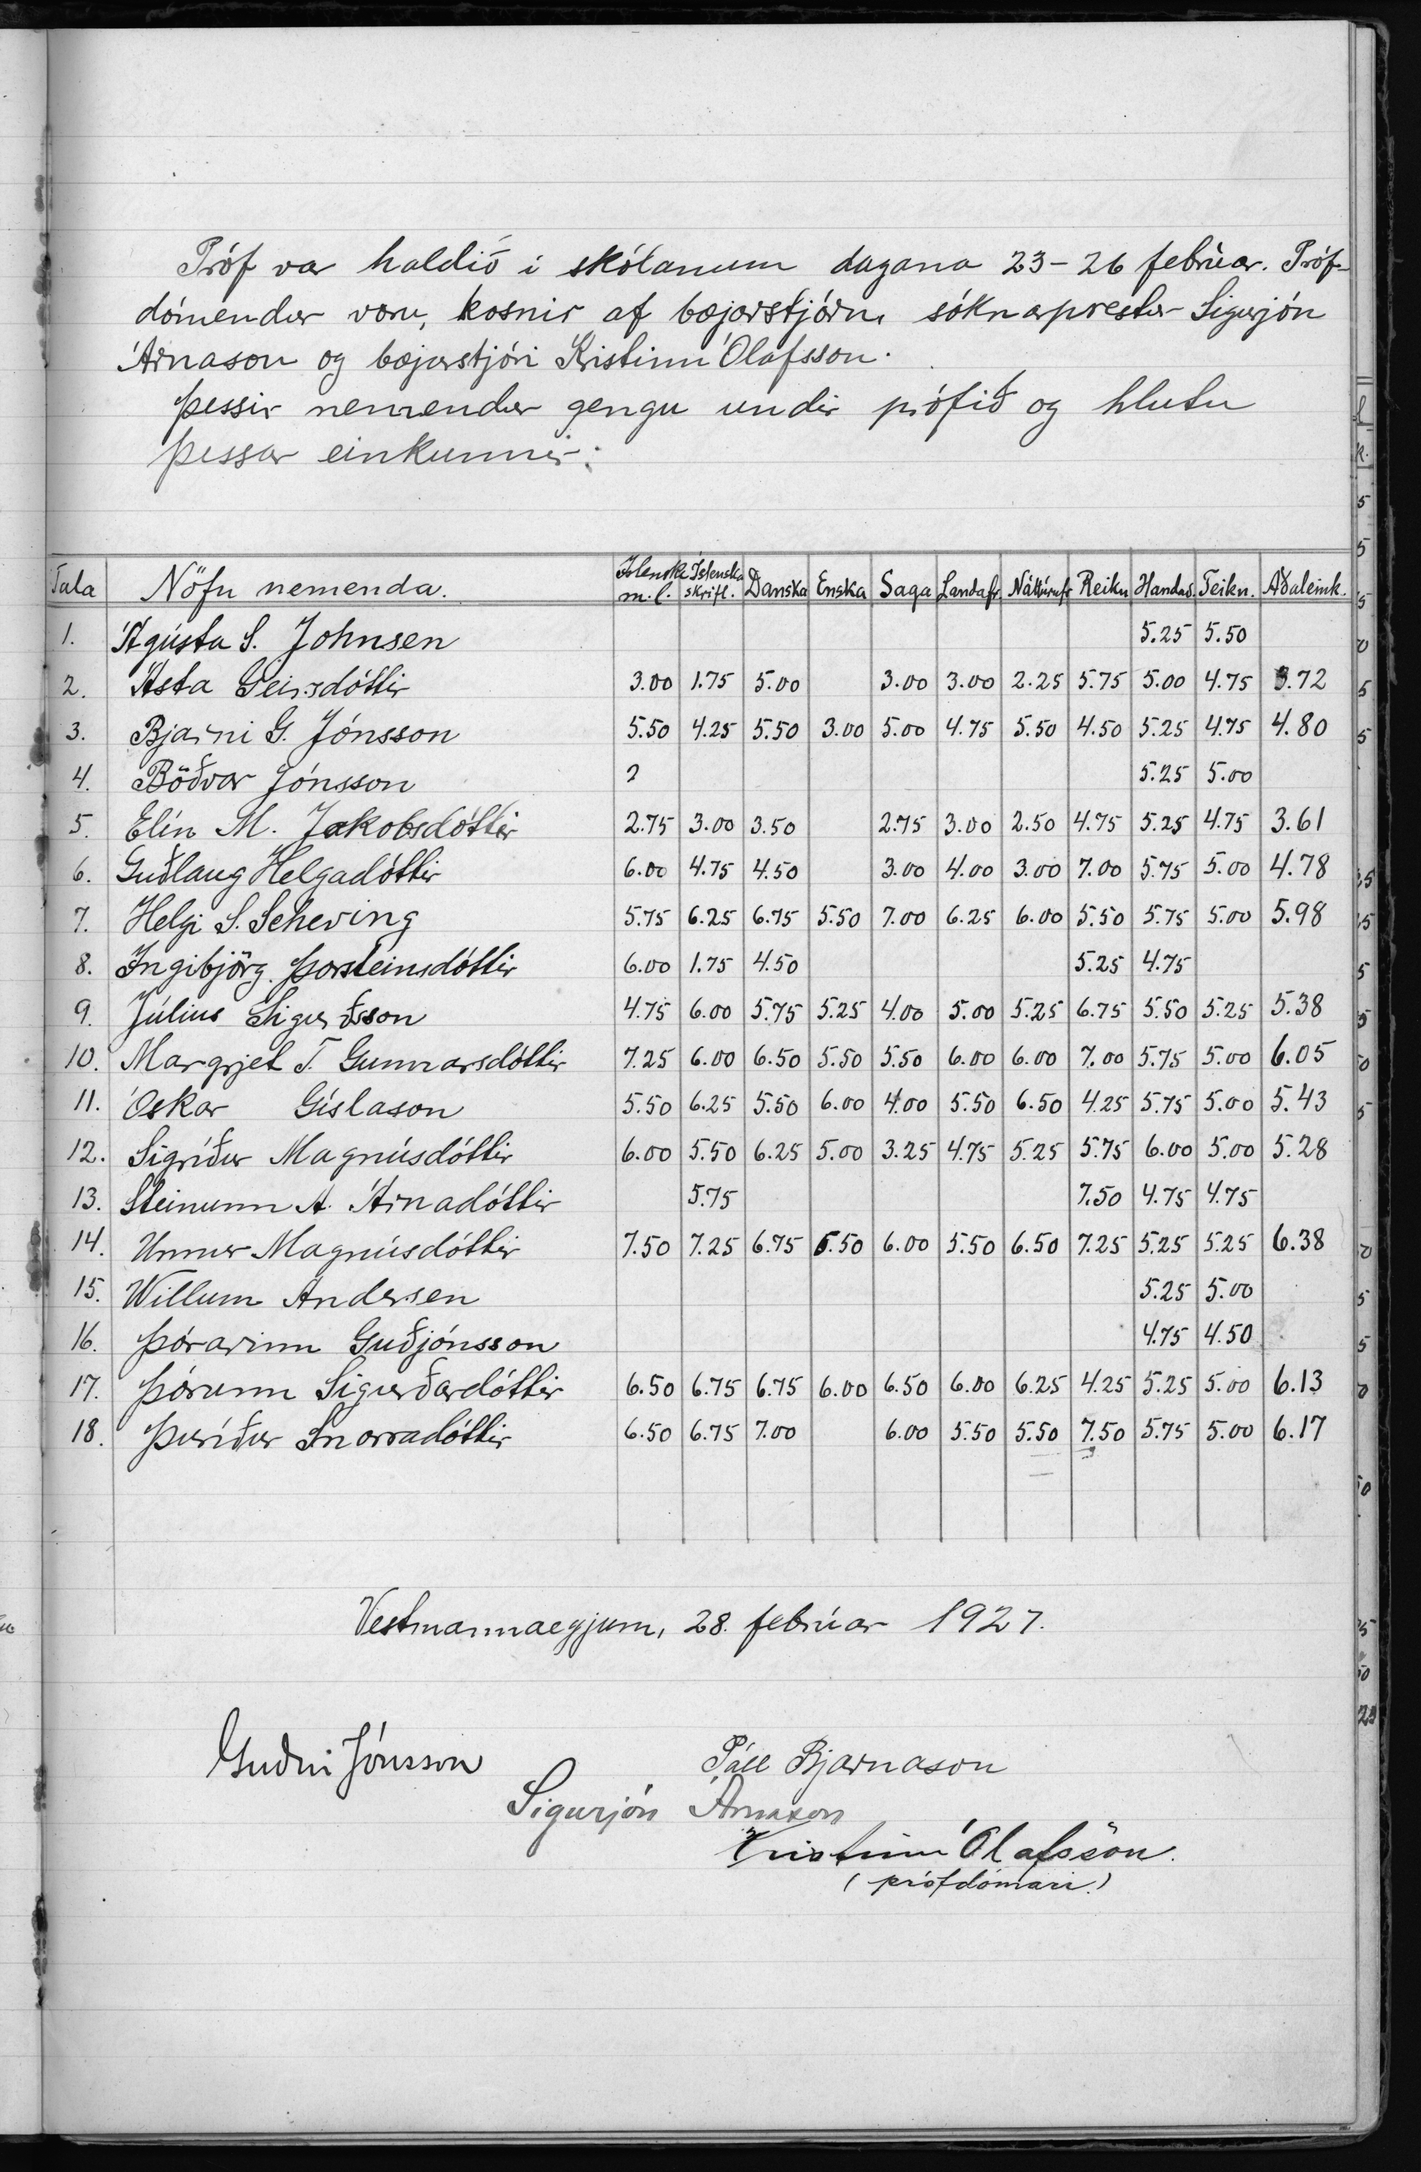 Próf var haldið í skólanum dagana 23-26 febrúar. Próf-
dómendur voru, kosnir af bæjarstjórn, sóknarprestur Sigurjón
Árnason og bæjarstjóri Kristinn Ólafsson.
Þessir nemendur gengu undir prófið og hlutu
þessar einkunnir:
Tala Nöfn nemenda. Íslenska m.l. Íslenska skrifl. Danska Enska Saga Landafr. Náttúrufr Reikn Handav. Teikn. Aðaleink.
1. Ágústa S. Johnsen 5.25 5.50
2. Ásta Geirsdóttir 3.00 1.75 5.00 3.00 3.00 2.25 5.75 5.00 4.75 3.72
3. Bjarni G. Jónsson 5.50 4.25 5.50 3.00 5.00 4.75 5.50 4.50 5.25 4.75 4.80
4. Böðvar Jónsson 2 5.25 5.00
5. Elín M. Jakobsdóttir 2.75 3.00 3.50 2.75 3.00 2.50 4.75 5.25 4.75 3.61
6. Guðlaug Helgadóttir 6.00 4.75 4.50 3.00 4.00 3.00 7.00 5.75 5.00 4.78
7. Helgi S. Scheving 5.75 6.25 6.75 5.50 7.00 6.25 6.00 5.50 5.75 5.00 5.98
8. Ingibjörg Þorsteinsdóttir 6.00 1.75 4.50 5.25 4.75
9. Júlíus Sigurðsson 4.75 6.00 5.75 5.25 4.00 5.00 5.25 6.75 5.50 5.25 5.38
10. Margrjet T. Gunnarsdóttir 7.25 6.00 6.50 5.50 5.50 6.00 6.00 7.00 5.75 5.00 6.05
11. Óskar Gíslason 5.50 6.25 5.50 6.00 4.00 5.50 6.50 4.25 5.75 5.00 5.43
12. Sigríður Magnúsdóttir 6.00 5.50 6.25 5.00 3.25 4.75 5.25 5.75 6.00 5.00 5.28
13. Steinunn A. Árnadóttir 5.75 7.50 4.75 4.75
14. Unnur Magnúsdóttir 7.50 7.25 6.75 6.50 6.00 5.50 6.50 7.25 5.25 5.25 6.38
15. Willum Andersen 5.25 5.00
16. Þórarinn Guðjónsson 4.75 4.50
17. Þórunn Sigurðardóttir 6.50 6.75 6.75 6.00 6.50 6.00 6.25 4.25 5.25 5.00 6.13
18. Þuríður Snorradóttir 6.50 6.75 7.00 6.00 5.50 5.50 7.50 5.75 5.00 6.17
Vestmannaeyjum, 28. febrúar 1927.
Guðni Jónsson Páll Bjarnason
Sigurjón Árnason
Kristinn Ólafsson.
(prófdómari.)